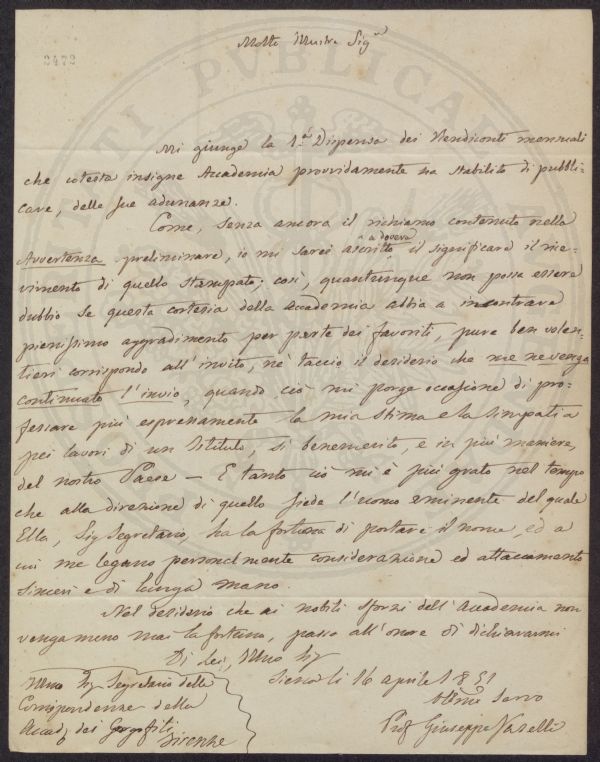 Molto Illustre Sig.r
2472
Mi giunge la 1.a Dispensa dei Rendiconti mensuali
che cotesta insigne Accademia provvidamente ha stabilito di pubbli=
care, delle sue adunanze.
Come, senza ancora il richiamo contenuto nella
Avvertenza preliminare, io mi sarei ascritto a dovere il significare il rice=
vimento di quello stampato; così, quantunque non possa essere
dubbio se questa cortesia della Accademia abbia a incontrare
pienissimo aggradimento per parte dei favoriti, pure ben volen=
tieri corrispondo all'invito, nè taccio il desiderio che me ne venga
continuato l'invio, quando ciò mi porge occasione di pro=
fessare più espressamente la mia stima e la simpatia
pei lavori di un Istituto, sì benemerito, e in più maniere,
del nostro Paese — E tanto ciò mi è più grato nel tempo
che alla direzione di quello siede l'uomo eminente del quale
Ella, Sig Segretario, ha la fortuna di portare il nome, ed a
cui me legano personalmente considerazione ed attaccamento
sinceri e di lunga mano.
Nel desiderio che ai nobili sforzi dell'Accademia non
venga meno mai la fortuna, passo all'onore di dichiararmi
Di Lei, Illmo Sig
Siena li 16 aprile 1851
Illmo Sig Segretario delle
Corrispondenze della
Accad. dei Georgofili
Firenze
servo
Prof Giuseppe